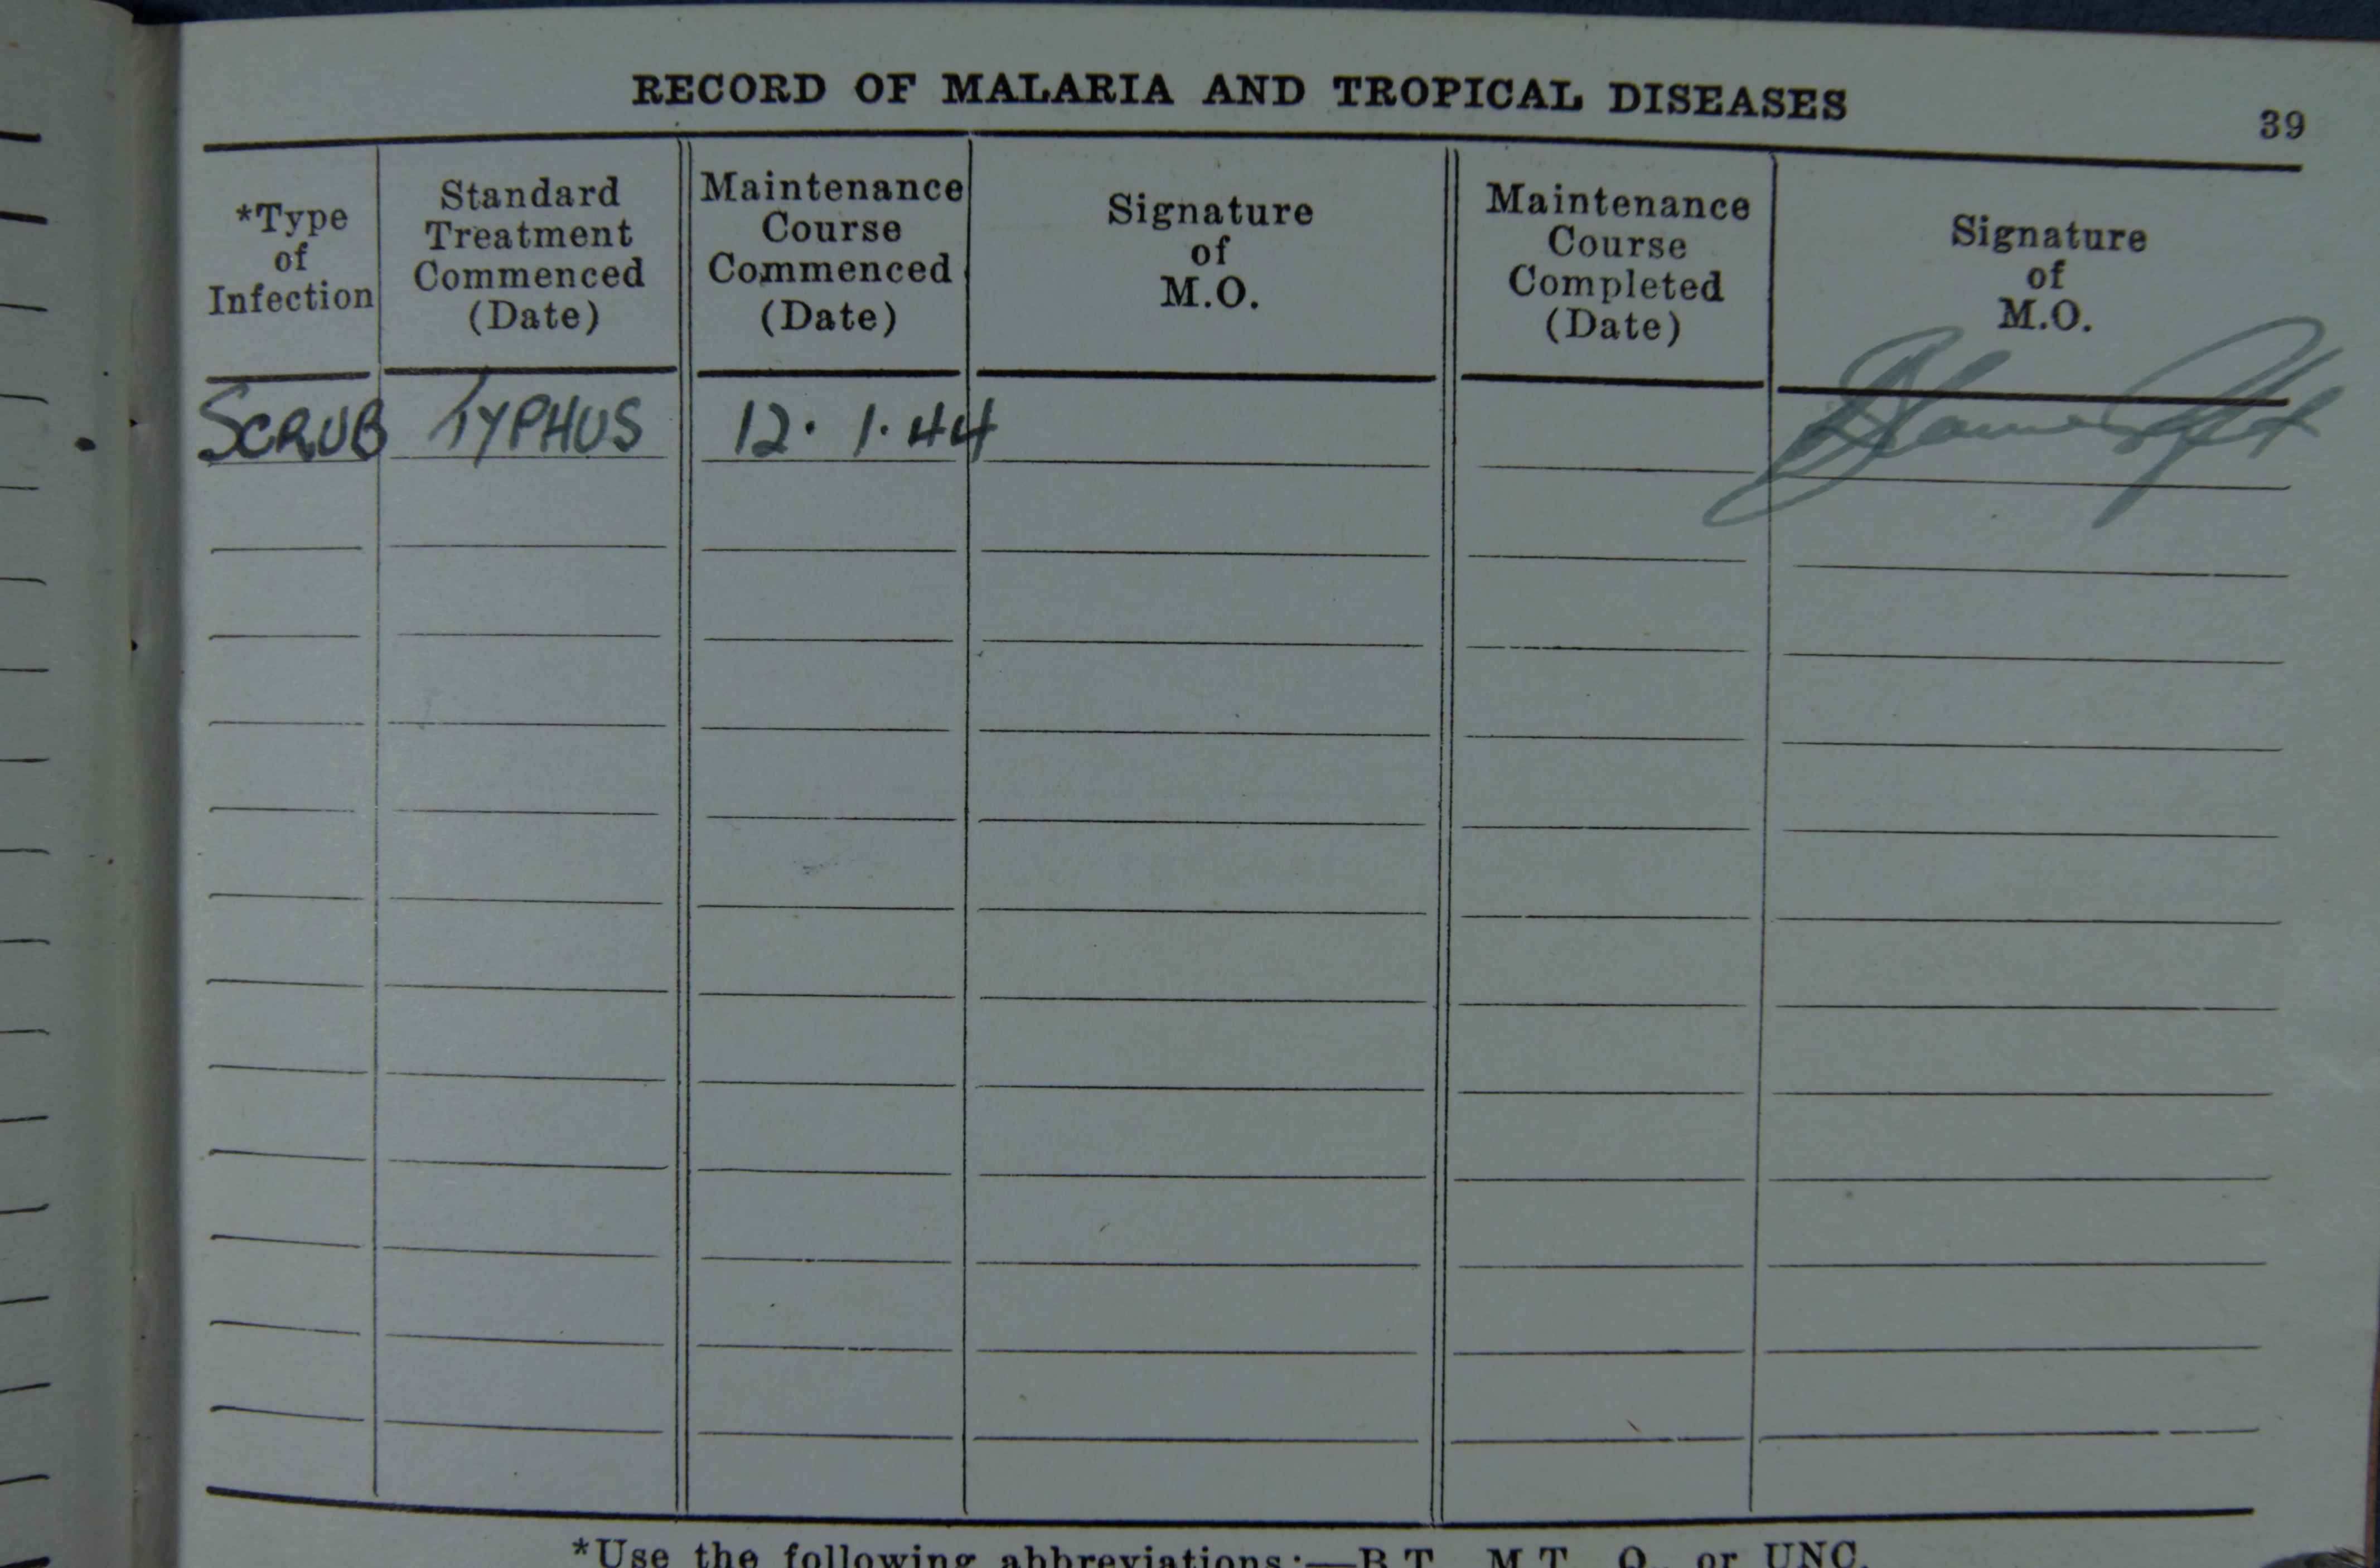 RECORD OF MALARIA AND TROPICAL DISEASES
39
*Type of Infection
Standard Treatment Commenced (Date)
Maintenance Course Commenced (Date)
Signature of M.O.
Maintenance Course Completed (Date)
Signature of M.O.
SCRUB TYPHUS 12.1.44
*Use the following abbreviations:—B.T. M.T. Q., or UNC.